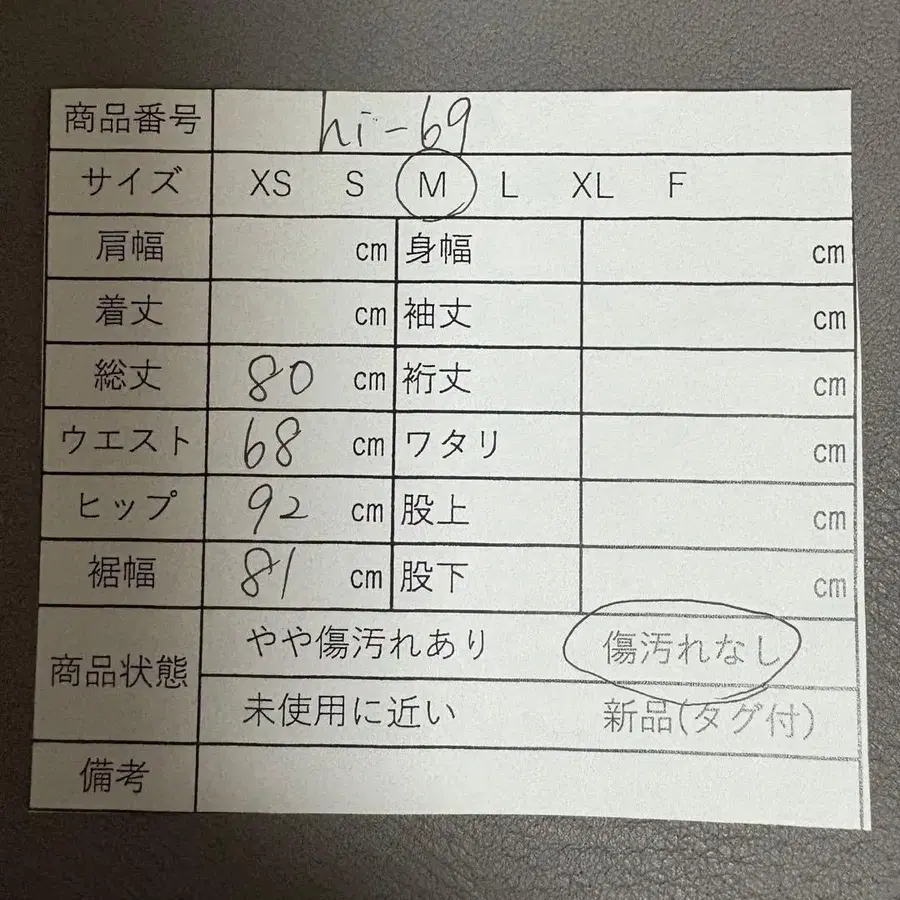 商品番号 hi-69
サイズ XS S M L XL F
肩幅 cm 身幅 cm
着丈 cm 袖丈 cm
総丈 80 cm 裄丈 cm
ウエスト 68 cm ワタリ cm
ヒップ 92 cm 股上 cm
裾幅 81 cm 股下 cm
商品状態 やや傷汚れあり 傷汚れなし
未使用に近い 新品(タグ付)
備考